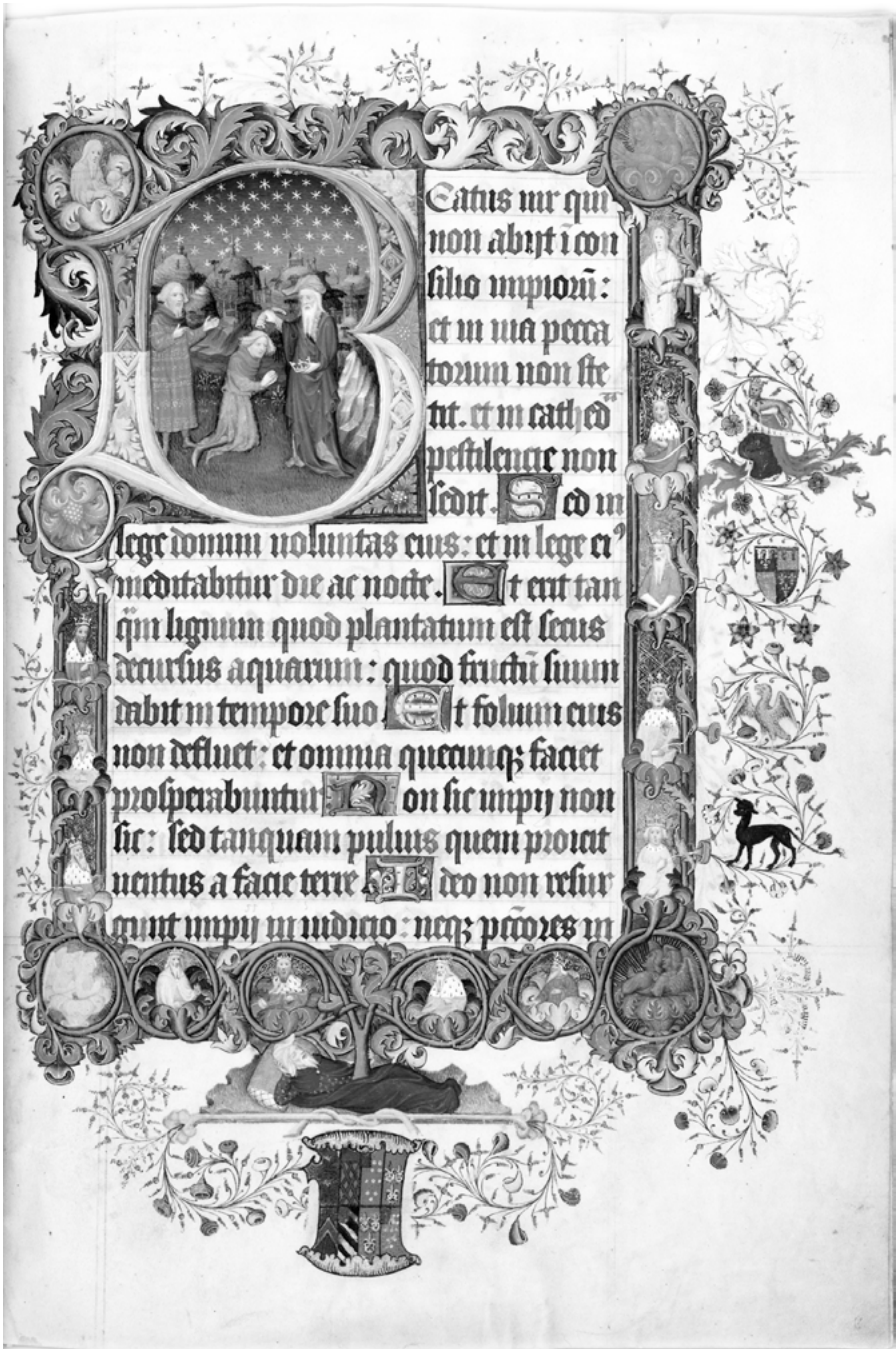 Beatus uir qui
non abijt i con
silio impiorū:
et in uia pecca
torum non ste
tit. et in cathed
pestilencie non
sedit. Sed in
lege domini uoluntas eius: et in lege ei⁹
meditabitur die ac nocte. Et erit tan
q̄m lignum quod plantatum est secus
decursus aquarum: quod fructū suum
dabit in tempore suo Et folium eius
non defluet: et omnia quecunqꝫ faciet
prosperabuntur Non sic impij non
sic: sed tanquam puluis quem proicit
uentus a facie terre Ideo non resur
gunt impij in iudicio: neqꝫ pc̄cores in